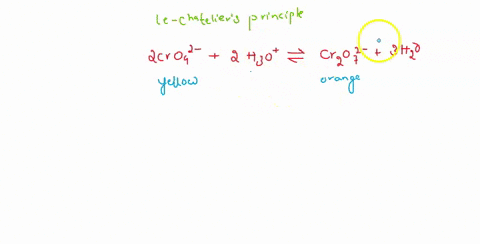 le-chatelier's principle
2CrO₄²⁻ + 2 H₃O⁺ ⇌ Cr₂O₇²⁻ + 3H₂O
yellow orange